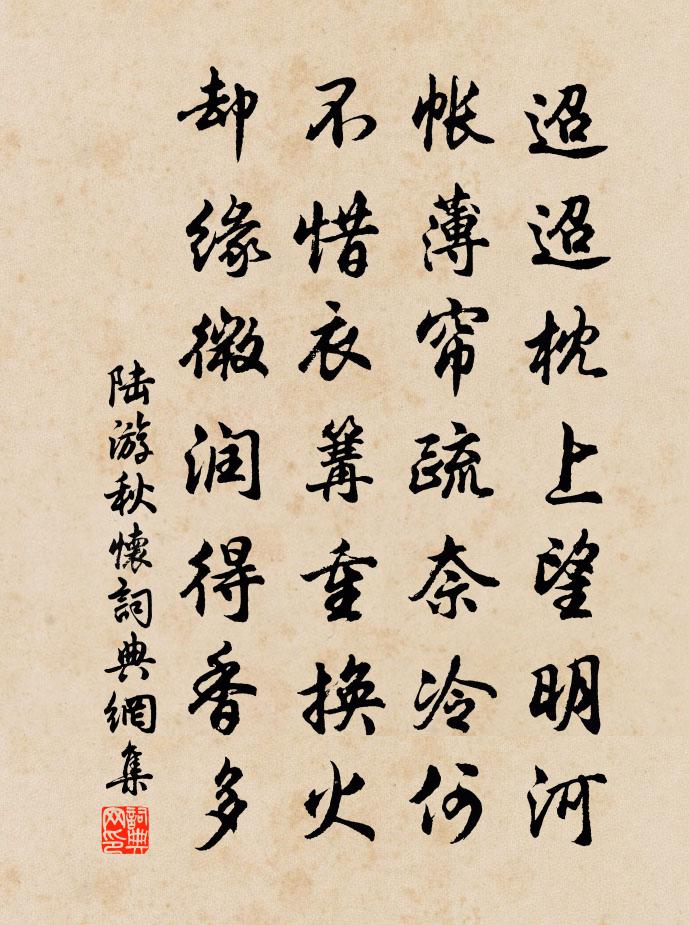 迢迢枕上望明河
帐薄帘疏奈冷何
不惜衣篝重换火
却缘微润得香多
陆游秋懷詞典網集
詞典网印